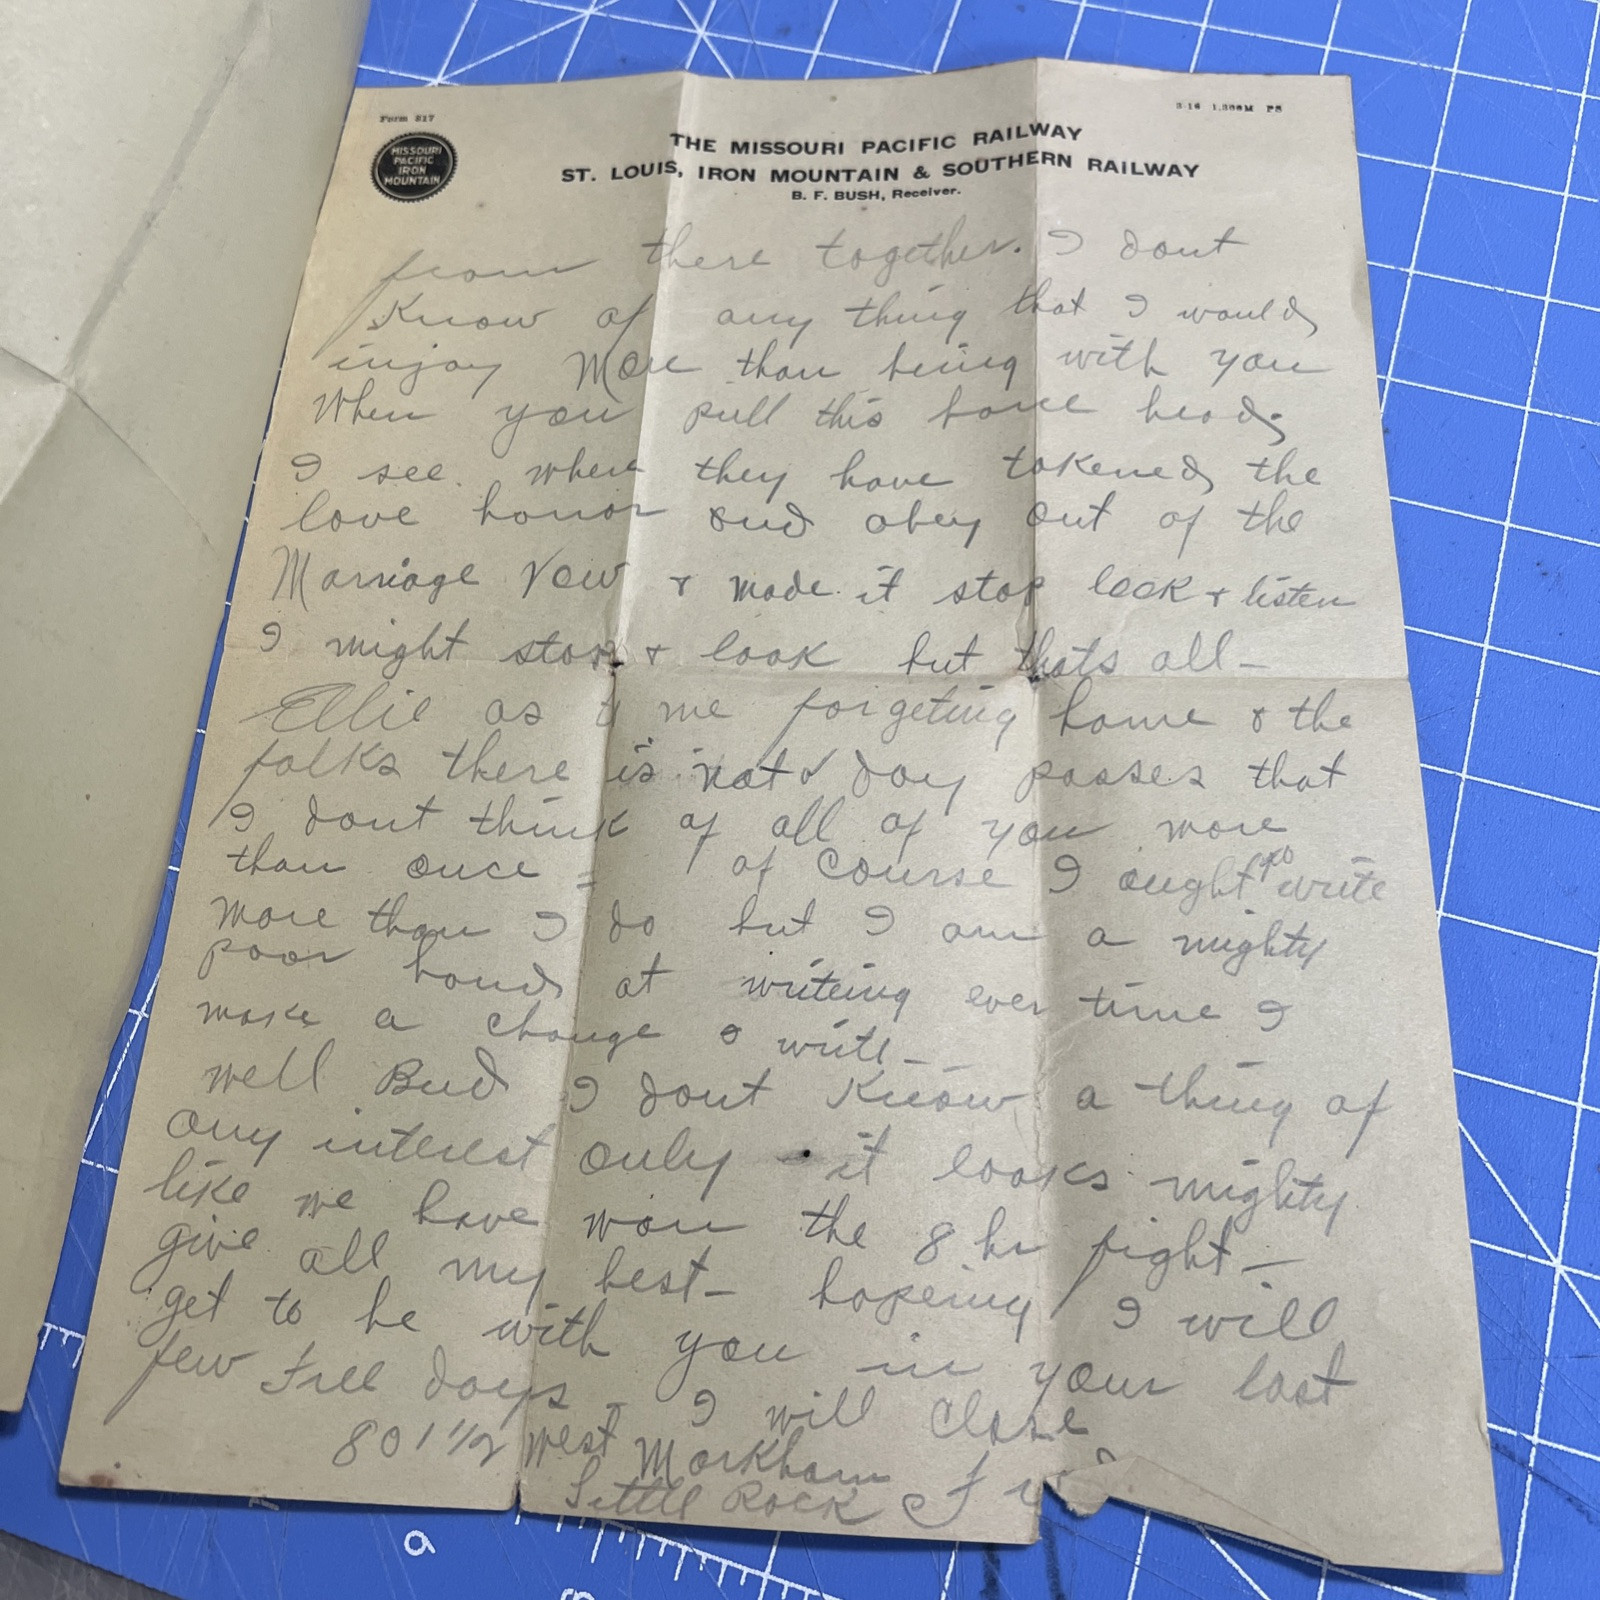 Form 817
3-16 1,500M PS
MISSOURI
PACIFIC
IRON
MOUNTAIN
THE MISSOURI PACIFIC RAILWAY
ST. LOUIS, IRON MOUNTAIN & SOUTHERN RAILWAY
B. F. BUSH, Receiver.
from there together. I dont
Know of any thing that I would
injoy More than being with you
When you pull this bone head
I see where they have tokened the
love honor and obey out of the
Marriage Vow & made it stop look & listen
I might stop & look but thats all –
Ellie as to me forgeting home & the
folks there is not a day passes that
I dont think of all of you more
than once = of course I ought to write
More than I do but I am a mighty
poor hand at writeing ever time I
make a change I write –
well Bud I dont Know a thing of
any interest only – it looks mighty
like we have won the 8 hr fight –
give all my best – hopeing I will
get to be with you in your last
few free days – I will close
801 1/2 West Markham
Little Rock